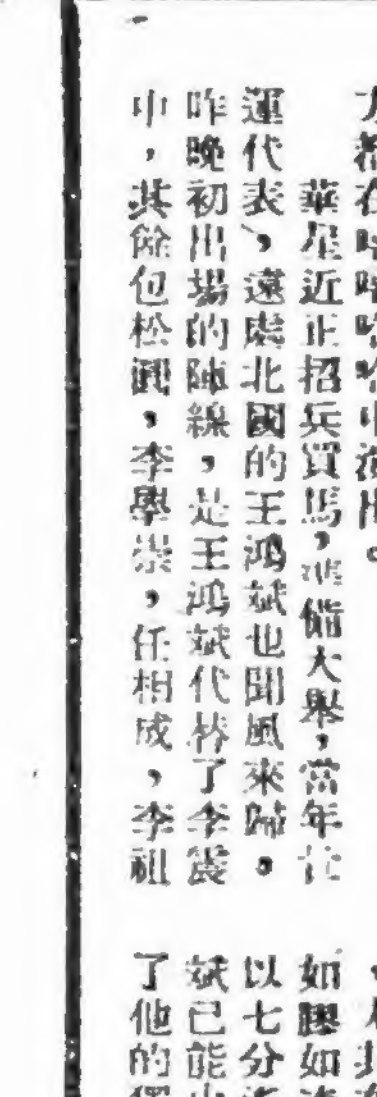 都在
華星近正招兵買馬，準備大舉，當年
運代表，遠處北國的王鴻斌也聞風來歸。
昨晚初出場的陣線，是王鴻斌代替了李震
中，其餘包松圓，李學崇，任相成，李祖
如膠如
以七分
斌已能
了他的